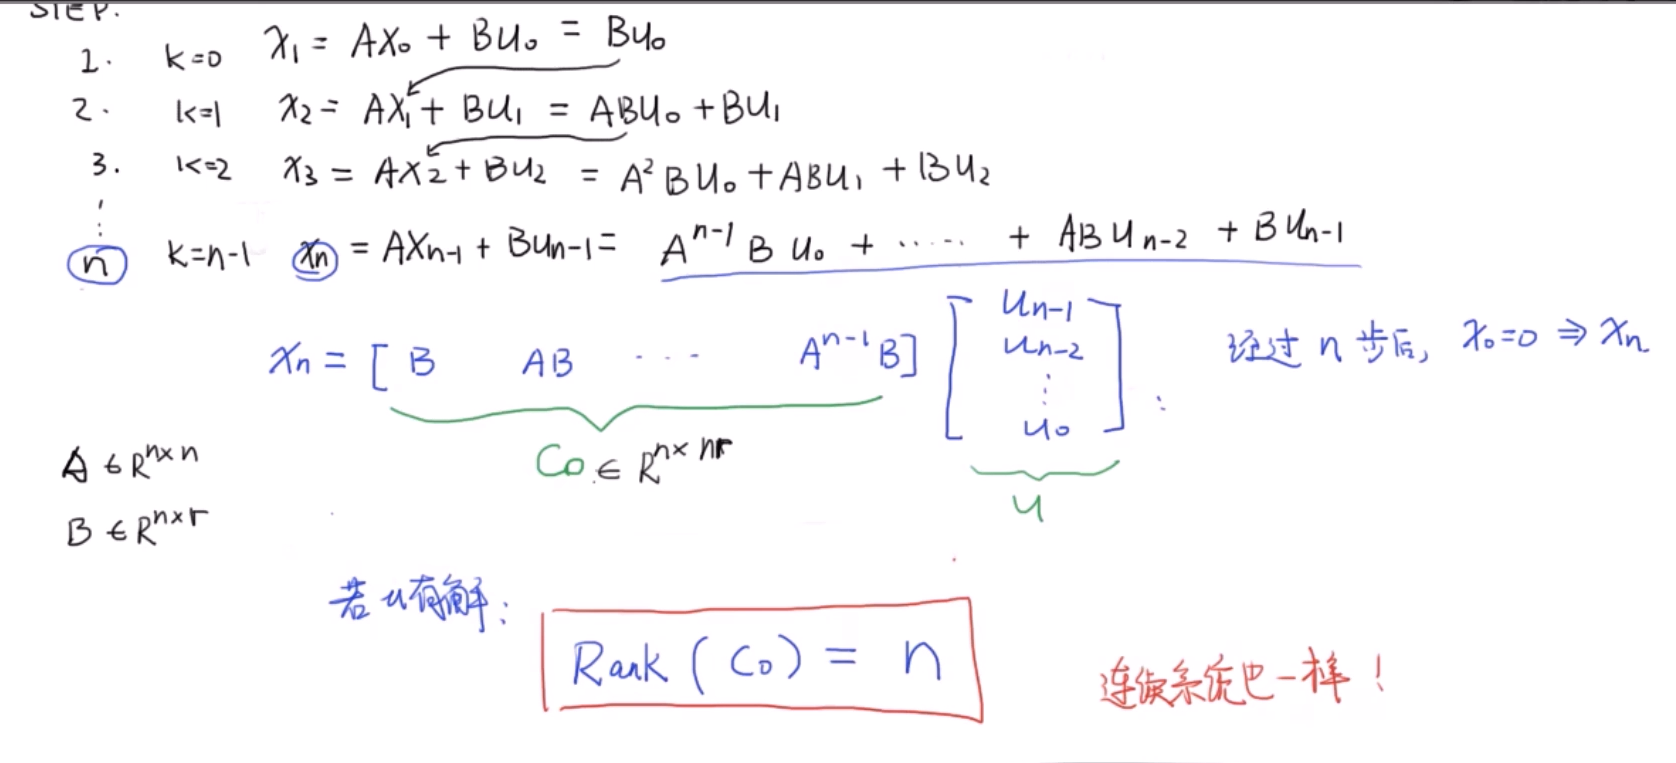 STEP.
1. k=0 x₁ = Ax₀ + Bu₀ = Bu₀
2. k=1 x₂ = Ax₁ + Bu₁ = ABu₀ + Bu₁
3. k=2 x₃ = Ax₂ + Bu₂ = A²Bu₀ + ABu₁ + Bu₂
⋮
n k=n-1 xₙ = Axₙ₋₁ + Buₙ₋₁ = Aⁿ⁻¹Bu₀ + ····· + ABuₙ₋₂ + Buₙ₋₁
xₙ = [ B AB ··· Aⁿ⁻¹B ] [ uₙ₋₁ uₙ₋₂ ⋮ u₀ ] 经过 n 步后, x₀=0 ⇒ xₙ
A ∈ Rⁿˣⁿ Co ∈ Rⁿˣⁿʳ u
B ∈ Rⁿˣʳ
若 u 有解:
Rank ( Co ) = n
连续系统也一样!